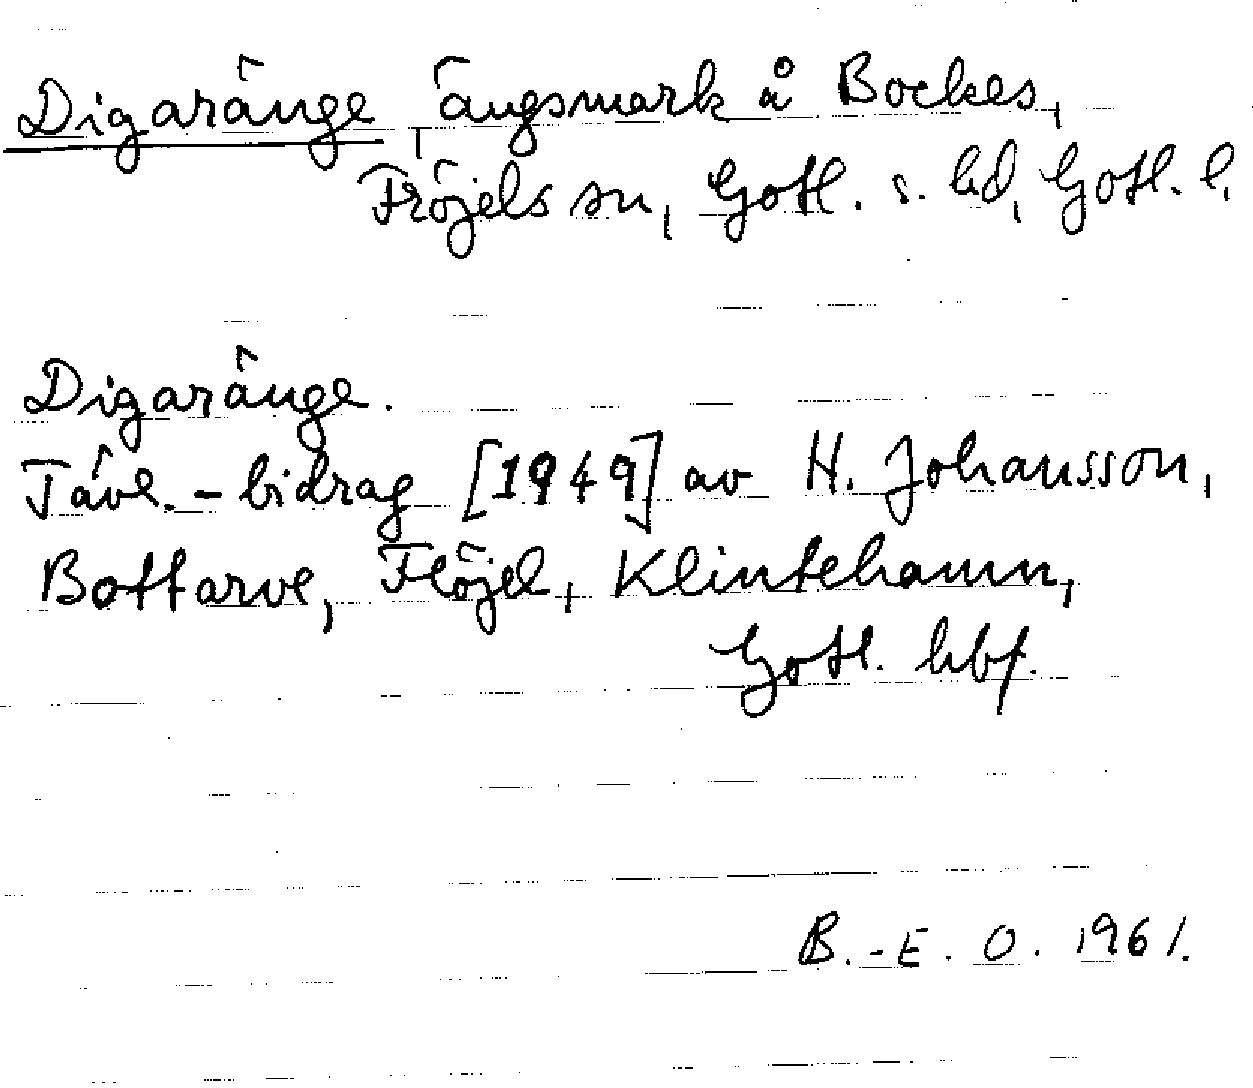 Digaränge, ängsmark å Bockes,
Fröjels sn, Gotl. s. hd, Gotl. l.
Digaränge.
Tävl.-bidrag [1949] av H. Johansson,
Bottarve, Flöjel, Klintehamn,
Gotl. hbf.
B.-E. O. 1961.